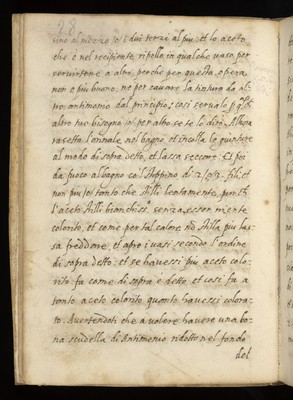 28
uno al mezzo, ò i dui terzi al piu. et lo aceto
che è nel recipiente, ripollo in qualche vaso per
servirtene a altro, perche per questa opera
non è piu buono, ne per cavare la tintura da al
tro antimonio dal principio; cosi servalo
altro tuo bisogno, ò per altro, se te lo dirò, Allhora
rasetta l'orinale nel bagno et incolla le giunture
al modo di sopra detto, et lassa seccare. Et poi
da fuoco al bagno co'l stuppino di 2. o 3. fili, et
non piu, et tanto che stilli lentamente,
l'aceto stilli bianchissº. senza esser niente
colorito, et come per tal calore, nõ stilla piu las
sa freddare, et apri i vasi secondo l'ordine
di sopra detto. et se havessi piu aceto colo-
rito fa come di sopra è detto, et cosi fa a
tanto aceto colorito quanto havessi colora-
to. Avertendoti che a volere havere una bo-
na scudella di Antimonio ridotto nel fondo
del